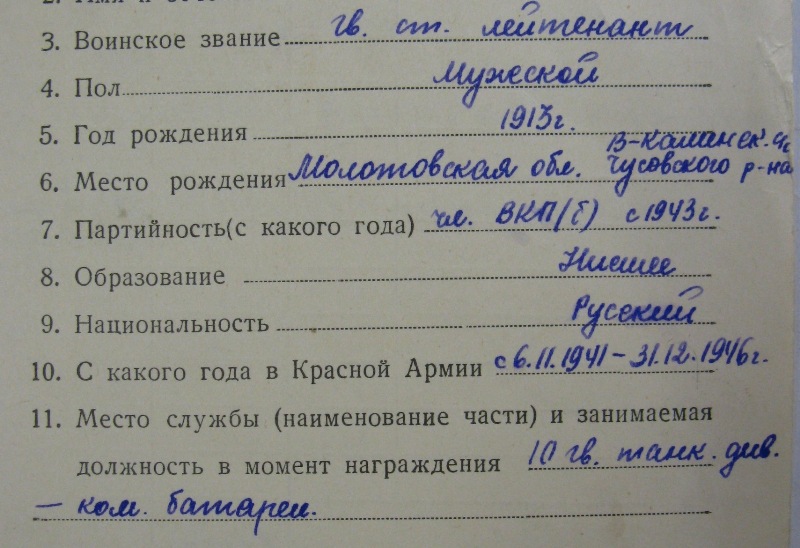 3. Воинское звание гв. ст. лейтенант
4. Пол Мужской
5. Год рождения 1913г.
В-Калинск.
6. Место рождения Молотовская обл. Чусовского р-на
7. Партийность(с какого года) чл. ВКП/б) с 1943г.
8. Образование Низшее
9. Национальность Русский
10. С какого года в Красной Армии с 6.11.1941-31.12.1946г.
11. Место службы (наименование части) и занимаемая
должность в момент награждения 10 гв. танк. див.
— ком. батареи.